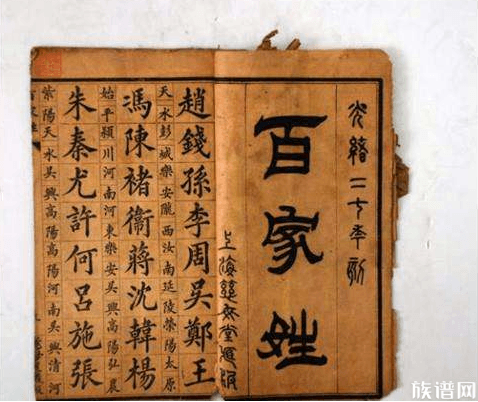 光緒二七年
百家姓
上海
趙錢孫李周吳鄭王
天水彭城樂安隴西汝南延陵滎陽太原
馮陳褚衛蔣沈韓楊
始平潁川河南河東樂安吳興高陽弘農
朱秦尤許何呂施張
紫陽天水吳興高陽高陽河南吳興清河
族谱网